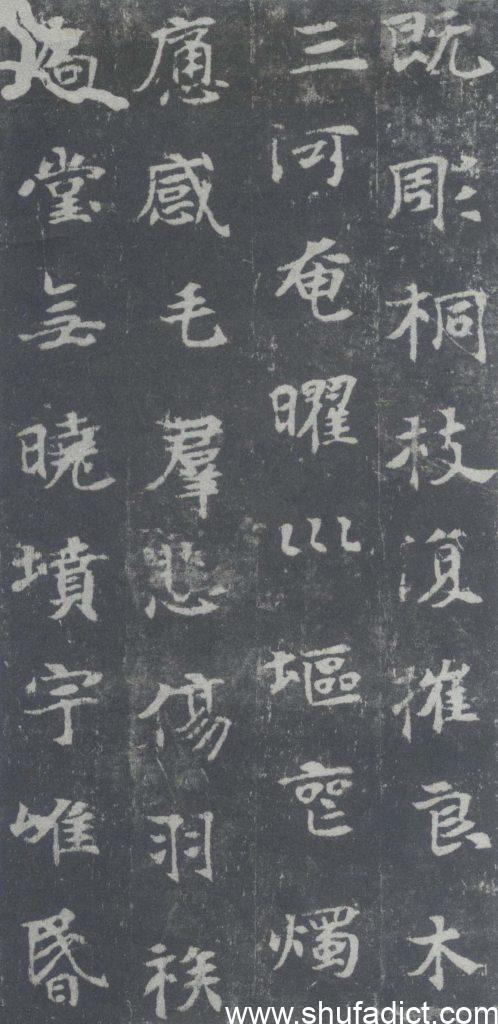 既彫桐枝復摧良木
三河奄曜巛塸燭
感毛羣悲傷羽族
堂无曉墳宇唯昏
www.shufadict.com